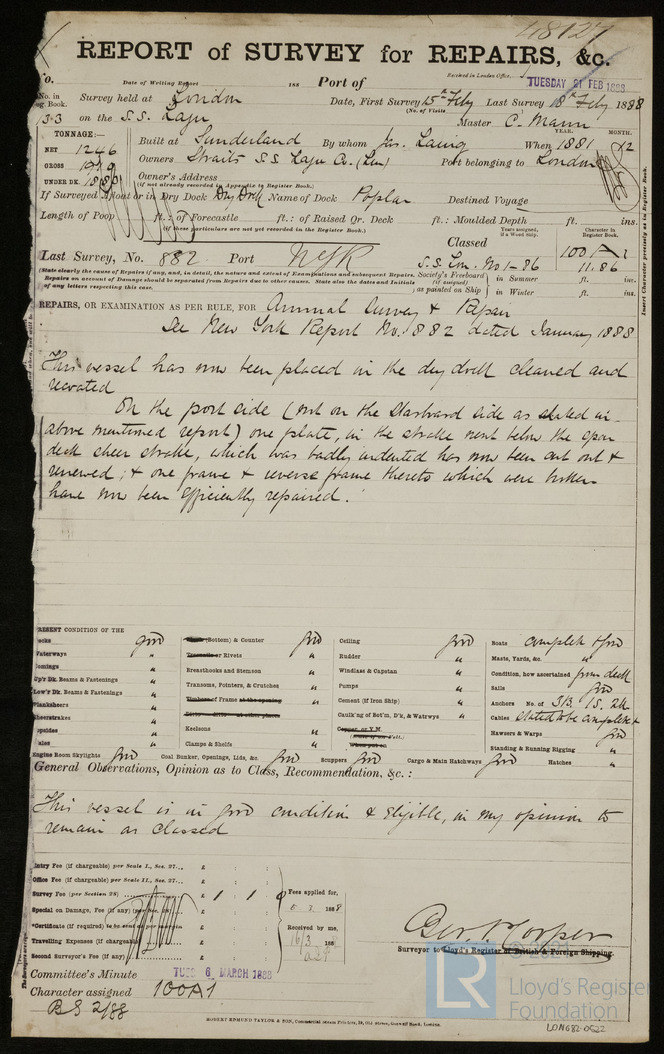 48127
REPORT of SURVEY for REPAIRS, &c.
Date of Writing Report 188 Port of Received in London Office, TUESDAY 21 FEB 1888
No. in Reg. Book. Survey held at London Date, First Survey 15th Feby Last Survey 18th Feby 1888
(No. of Visits
33 on the S.S. Laju Master C. Mann
TONNAGE:—
NET 1246
GROSS
UNDER DK.
Built at Sunderland By whom Jas. Laing When 1881 12
YEAR. MONTH.
Owners Straits S.S. Laju Co. (Lim) Port belonging to London
Owner's Address
(if not already recorded in Appendix to Register Book.)
If Surveyed Afloat or in Dry Dock Dry Dock Name of Dock Poplar Destined Voyage
Length of Poop ft.: of Forecastle ft.: of Raised Qr. Deck ft.: Moulded Depth ft. ins.
(if these particulars are not yet recorded in the Register Book.)
Years assigned, if a Wood Ship. Character in Register Book.
Last Survey, No. 882 Port N Yk Classed 100A1
S.S. Lon. No1-86 11.86
(State clearly the cause of Repairs if any, and, in detail, the nature and extent of Examinations and subsequent Repairs. Repairs on account of Damage should be separated from Repairs due to other causes. State also the dates and Initials of any letters respecting this case.
Society's Freeboard (if assigned) as painted on Ship in Summer ft. ins.
in Winter ft. ins.
REPAIRS, OR EXAMINATION AS PER RULE, FOR Annual Survey & Repair
See New York Report No. 882 dated January 1888
This vessel has now been placed in the dry dock cleaned and
recoated
On the port side (not on the Starboard side as stated in
above mentioned report) one plate, in the strake next below the spar
deck sheer strake, which was badly indented has now been cut out &
renewed; & one frame & reverse frame thereto which were broken
have now been efficiently repaired.
PRESENT CONDITION OF THE
Decks good
Waterways "
Comings "
Up'r Dk. Beams & Fastenings "
Low'r Dk. Beams & Fastenings "
Planksheers "
Sheerstrakes "
Topsides "
Wales "
Engine Room Skylights good
(Bottom) & Counter good
Treenails or Rivets "
Breasthooks and Stemson "
Transoms, Pointers, & Crutches "
Timbers of Frame at the opening
Ditto ditto at other places
Keelsons "
Clamps & Shelfs "
Coal Bunker, Openings, Lids, &c. good
Ceiling good
Rudder "
Windlass & Capstan "
Pumps "
Cement (if Iron Ship) "
Caulk'ng of Bot'm, D'k, & Watrwys "
Copper, or Y.M.
When put on
Scuppers good Cargo & Main Hatchways good
Boats complete & good
Masts, Yards, &c. "
Condition, how ascertained from deck
Sails good
Anchors No. of 3B. 1S. 2K
Cables stated to be complete &
Hawsers & Warps good
Standing & Running Rigging "
Hatches "
General Observations, Opinion as to Class, Recommendation, &c.:
This vessel is in good condition & eligible, in my opinion to
remain as classed
Entry Fee (if chargeable) per Scale I., Sec. 27... £ : :
Office Fee (if chargeable) per Scale II., Sec. 27... £ : :
Survey Fee (per Section 28) £ 1 : 1 :
Special or Damage, Fee (if any) (per Sec. 28) £ : :
*Certificate (if required) to be sent as per margin £ : :
Travelling Expenses (if chargeable) £ : :
Second Surveyor's Fee (if any) £ : :
Fees applied for,
6.3. 1888
Received by me,
16/3 1888
Geo. P. Cooper
Surveyor to Lloyd's Register of British & Foreign Shipping.
Committee's Minute TUES 6 MARCH 1888
Character assigned 100A1
B.S. 2/88
ROBERT EDMUND TAYLOR & SON, Commercial Steam Printers, 19, Old Street, Goswell Road, London.
© 2021
LR
Lloyd's Register
Foundation
LON682-0522